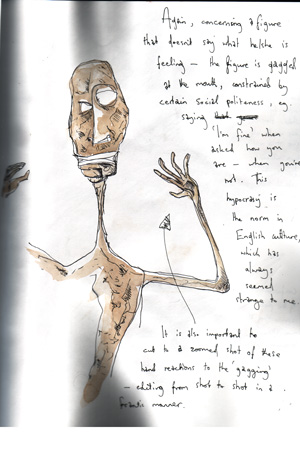 Again, concerning a figure
that doesn't say what he/she is
feeling – the figure is gagged
at the mouth, constrained by
certain social politeness, eg.
saying
'I'm fine' when
asked how you
are – when you're
not. This
hypocrisy is
the norm in
English culture,
which has
always
seemed
strange to me.
It is also important to
cut to a zoomed shot of these
hand reactions to the 'gagging'
– editing from shot to shot in a
frenetic manner.